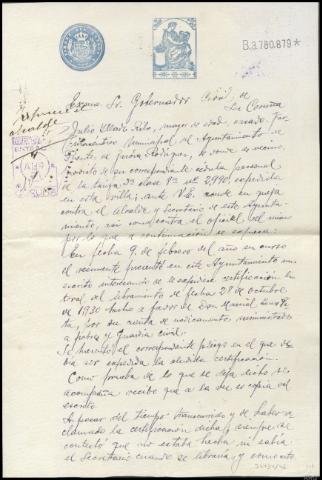 B.3.780.879*
Excmo. Sr. Gobernador Civil de
La Coruña
Julio mayor de edad, casado, Por
Municipal del Ayuntamiento de
Puente de García Rodríguez, de donde es vecino,
provisto de su correspondiente cédula personal
de la tarifa 3ª clase nº 2.990, expedida
en esta villa; ante V.E. acude en queja
contra el Alcalde y Secretario de este Ayunta-
miento, contra el oficial del mismo
por lo que a continuación se expresa:
En fecha 9 de febrero del año en curso
el recurrente presentó en este Ayuntamiento un
escrito interesando se le expidiera certificación li-
teral del libramiento de fecha 28 de octubre
de 1930 hecho a favor de Don Manuel
por su cuenta de medicamentos suministrados
a pobres y Guardia civil.
el correspondiente pliego en el que de-
bía ser expedida la aludida certificación.
Como prueba de lo que se deja dicho se
acompaña recibo que a la vez es copia del
escrito.
A pesar del tiempo transcurrido y de haber re-
clamado la certificación dicha, siempre se
contestó que no estaba hecha ni sabía
el Secretario cuando se libraría, y como esto